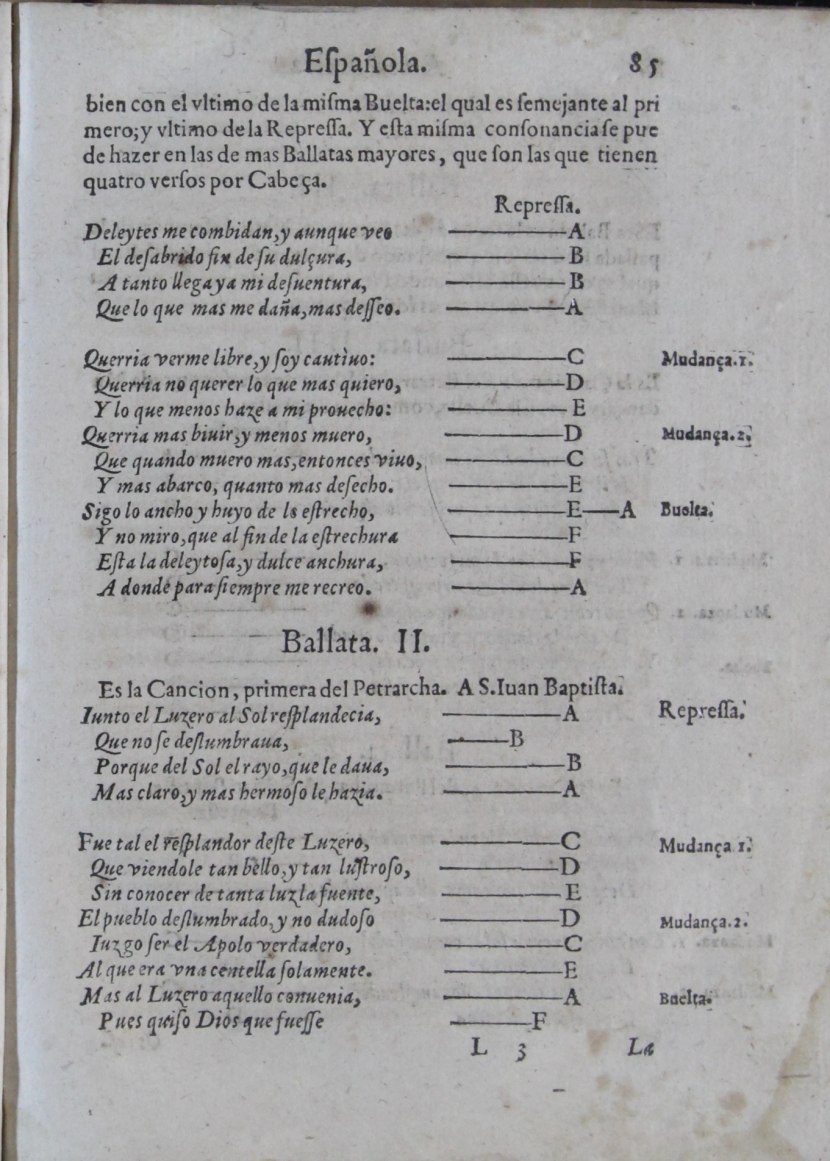 Eſpañola. 85
bien con el vltimo de la miſma Buelta:el qual es ſemejante al pri
mero;y vltimo de la Repreſſa. Y eſta miſma conſonancia ſe pue
de hazer en las de mas Ballatas mayores, que ſon las que tienen
quatro verſos por Cabeça.
Repreſſa.
Deleytes me combidan,y aunque veo ——A
El deſabrido fin de ſu dulçura, ——B
A tanto llega ya mi deſuentura, ——B
Que lo que mas me daña,mas deſſeo. ——A
Querria verme libre,y ſoy cautiuo: ——C Mudança.1.
Querria no querer lo que mas quiero, ——D
Y lo que menos haze a mi prouecho: ——E
Querria mas biuir,y menos muero, ——D Mudança.2.
Que quando muero mas,entonces viuo, ——C
Y mas abarco, quanto mas deſecho. ——E
Sigo lo ancho y huyo de lo eſtrecho, ——E——A Buelta.
Y no miro, que al fin de la eſtrechura ——F
Eſta la deleytoſa,y dulce anchura, ——F
A donde para ſiempre me recreo. ——A
Ballata. II.
Es la Cancion, primera del Petrarcha. A S.Iuan Baptiſta.
Iunto el Luzero al Sol reſplandecia, ——A Repreſſa.
Que no ſe deſlumbraua, ——B
Porque del Sol el rayo,que le daua, ——B
Mas claro,y mas hermoſo le hazia. ——A
Fue tal el reſplandor deſte Luzero, ——C Mudança 1.
Que viendole tan bello,y tan luſtroſo, ——D
Sin conocer de tanta luz la fuente, ——E
El pueblo deſlumbrado,y no dudoſo ——D Mudança.2.
Iuzgo ſer el Apolo verdadero, ——C
Al que era vna centella ſolamente. ——E
Mas al Luzero aquello conuenia, ——A Buelta.
Pues quiſo Dios que fueſſe ——F
L 3 La